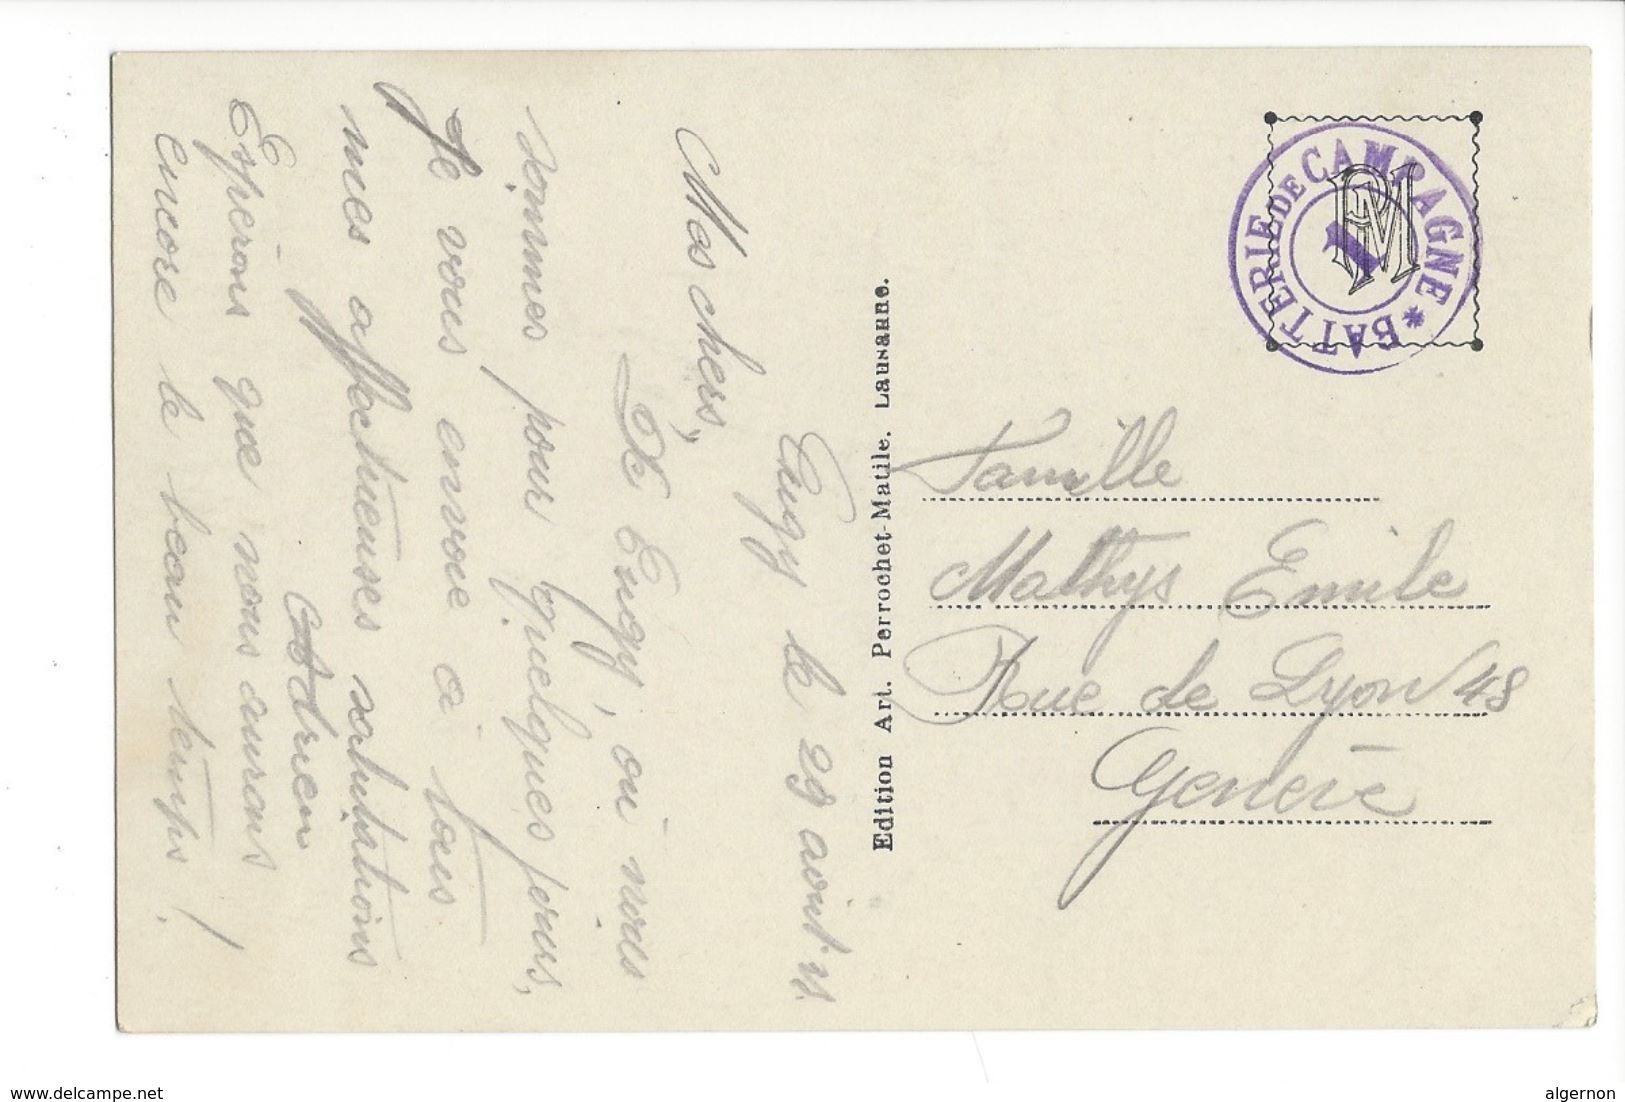 Eugy le 29 août
Mes chers,
De Eugy, où nous
sommes pour quelques jours,
Je vous envoie à tous
mes affectueuses salutations
Adrien
Espérons que nous aurons
encore le beau temps!
Edition Art. Perrochet-Matile. Lausanne.
BATTERIE DE CAMPAGNE *
1
PM
Famille
Mathys Emile
Rue de Lyon 48
Genève
www.delcampe.net
algernon